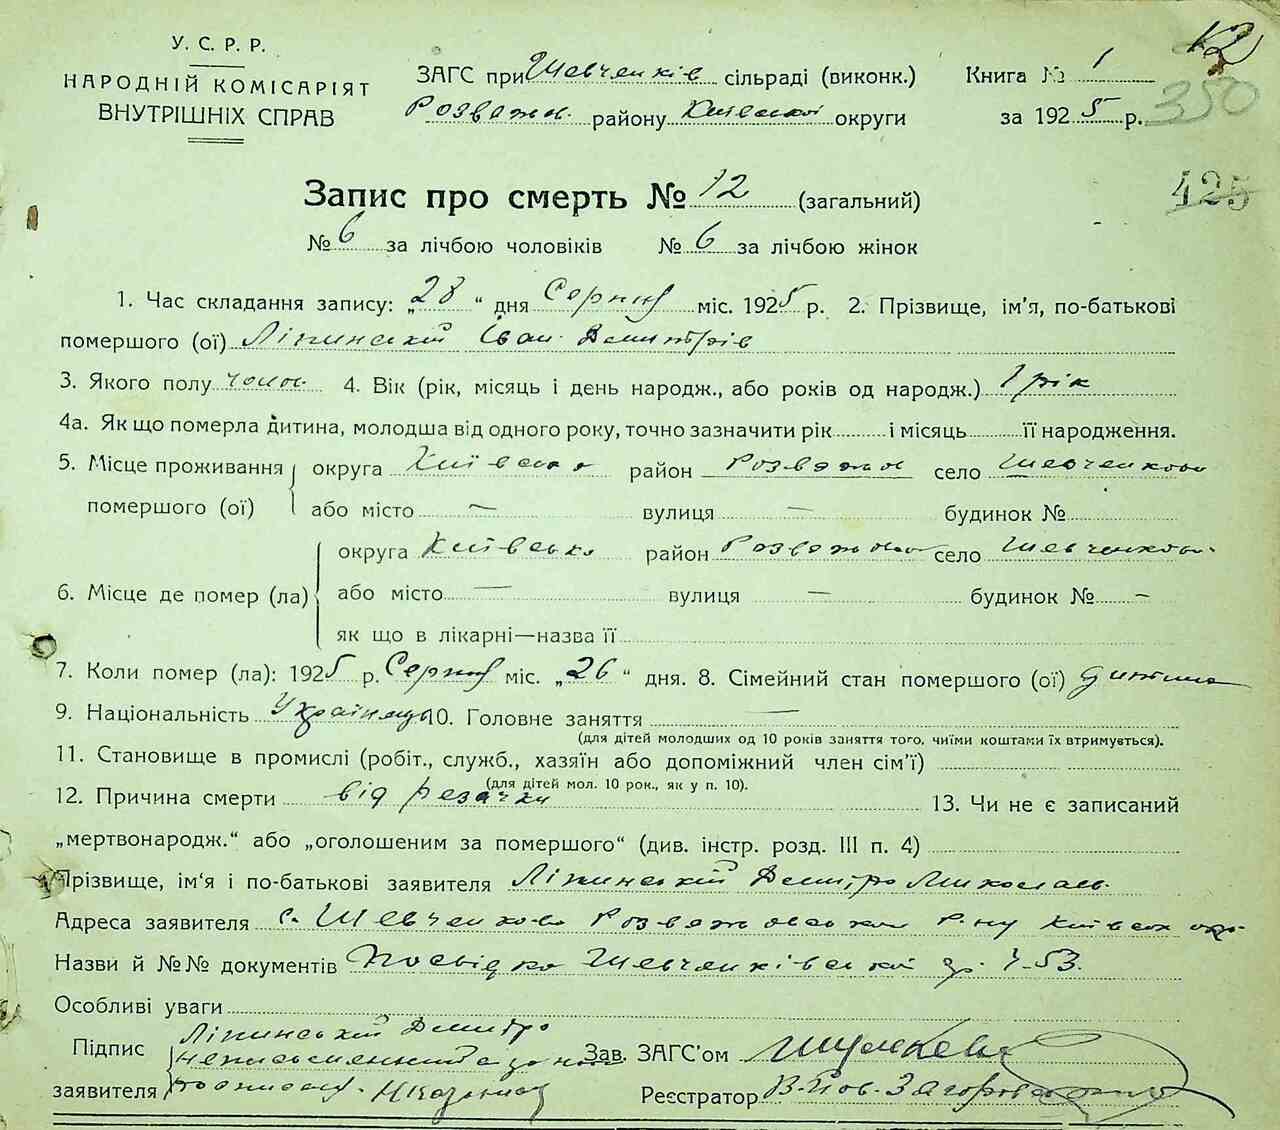 У. С. Р. Р.
НАРОДНІЙ КОМІСАРІЯТ
ВНУТРІШНІХ СПРАВ
ЗАГС при Шевченків сільраді (виконк.)
Розважів. району Київської округи
Книга № 1
за 1925 р.
12
350
425
Запис про смерть № 12 (загальний)
№ 6 за лічбою чоловіків № 6 за лічбою жінок
1. Час складання запису: „28 “ дня Серпня міс. 1925 р. 2. Прізвище, ім’я, по-батькові
помершого (ої) Ліпинській Іван Дмитрів
3. Якого полу чолов. 4. Вік (рік, місяць і день народж., або років од народж.) 1 рік
4а. Як що померла дитина, молодша від одного року, точно зазначити рік і місяць її народження.
5. Місце проживання округа Київська район Розважів село Шевченково
помершого (ої) або місто — вулиця — будинок №
округа Київська район Розважів село Шевченково
6. Місце де помер (ла) або місто — вулиця — будинок № —
як що в лікарні—назва її
7. Коли помер (ла): 1925 р. Серпня міс. „26 “ дня. 8. Сімейний стан помершого (ої) дитина
9. Національність Українець 10. Головне заняття —
(для дітей молодших од 10 років заняття того, чиїми коштами їх втримується).
11. Становище в промислі (робіт., служб., хазяїн або допоміжний член сім’ї)
(для дітей мол. 10 рок., як у п. 10).
12. Причина смерти від резачки 13. Чи не є записаний
„мертвонародж.“ або „оголошеним за помершого“ (див. інстр. розд. III п. 4)
Прізвище, ім’я і по-батькові заявителя Ліпинській Дмитро Миколаєв.
Адреса заявителя с. Шевченково Розважевськ р-ну Київськ окр.
Назви й №№ документів Посвідка Шевченківської 4-53.
Особливі уваги
Підпис Ліпинській Дмитро
неписьменний а за нього Зав. ЗАГС’ом
заявителя Реєстратор